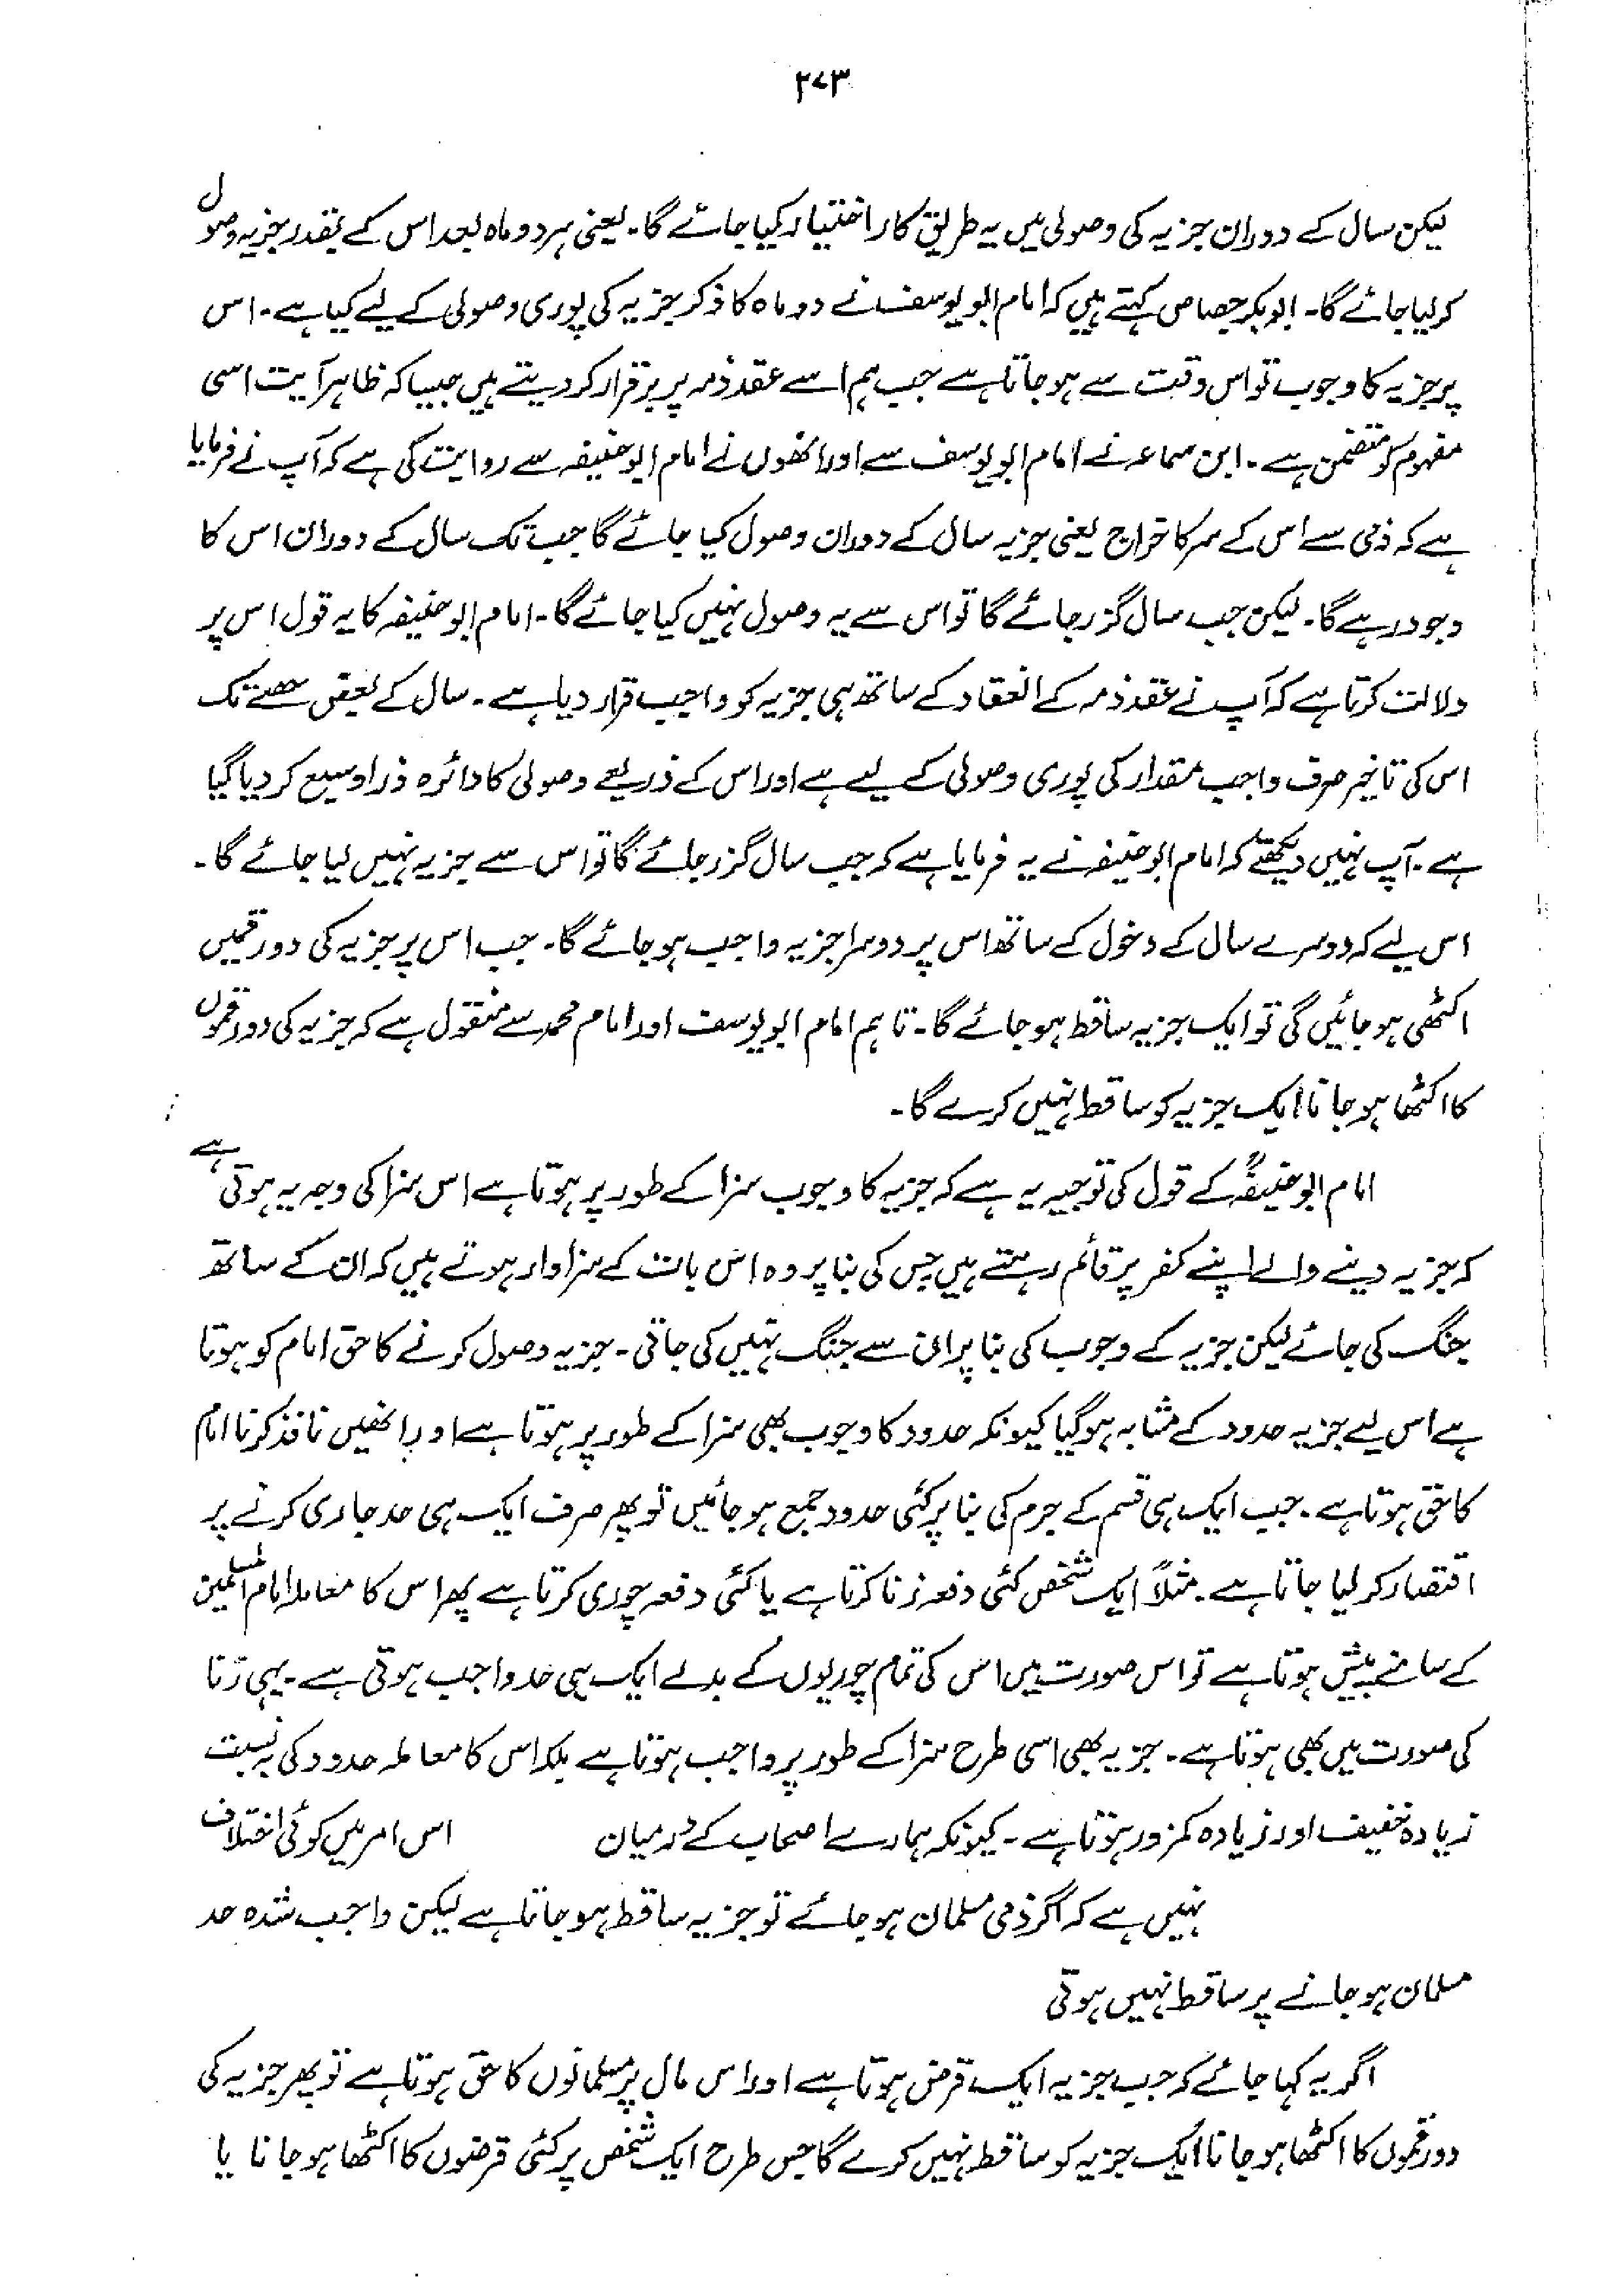 ۲۷۳
لیکن سال کے دوران جزیہ کی وصولی میں یہ طریق کار اختیار کیا جائے گا۔ یعنی ہر دو ماہ بعد اس کے بقدر جزیہ وصول
کر لیا جائے گا۔ ابوبکر جصاص کہتے ہیں کہ امام ابو یوسف نے دو ماہ کا ذکر جزیہ کی پوری وصولی کے لیے کیا ہے۔ اس
پر جزیہ کا وجوب تو اس وقت سے ہو جاتا ہے جب ہم اسے عقد ذمہ پر برقرار کر دیتے ہیں جیسا کہ ظاہر آیت اسی
مفہوم کو متضمن ہے۔ ابن سماعہ نے امام ابو یوسف سے اور انھوں نے امام ابو حنیفہ سے روایت کی ہے کہ آپ نے فرمایا
ہے کہ ذمی سے اس کے سر کا خراج یعنی جزیہ سال کے دوران وصول کیا جائے گا جب تک سال کے دوران اس کا
وجود رہے گا۔ لیکن جب سال گزر جائے گا تو اس سے یہ وصول نہیں کیا جائے گا۔ امام ابو حنیفہ کا یہ قول اس پر
دلالت کرتا ہے کہ آپ نے عقد ذمہ کے انعقاد کے ساتھ ہی جزیہ کو واجب قرار دیا ہے۔ سال کے بعض حصے تک
اس کی تاخیر صرف واجب مقدار کی پوری وصولی کے لیے ہے اور اس کے ذریعے وصولی کا دائرہ ذرا وسیع کر دیا گیا
ہے۔ آپ نہیں دیکھتے کہ امام ابو حنیفہ نے یہ فرمایا ہے کہ جب سال گزر جائے گا تو اس سے جزیہ نہیں لیا جائے گا۔
اس لیے کہ دوسرے سال کے دخول کے ساتھ اس پر دوسرا جزیہ واجب ہو جائے گا۔ جب اس پر جزیہ کی دو رقمیں
اکٹھی ہو جائیں گی تو ایک جزیہ ساقط ہو جائے گا۔ تاہم امام ابو یوسف اور امام محمد سے منقول ہے کہ جزیہ کی دو رقموں
کا اکٹھا ہو جانا ایک جزیہ کو ساقط نہیں کرے گا۔
امام ابو حنیفہؒ کے قول کی توجیہ یہ ہے کہ جزیہ کا وجوب سزا کے طور پر ہوتا ہے اس سزا کی وجہ یہ ہوتی ہے
کہ جزیہ دینے والے اپنے کفر پر قائم رہتے ہیں جس کی بنا پر وہ اس بات کے سزاوار ہوتے ہیں کہ ان کے ساتھ
جنگ کی جائے لیکن جزیہ کے وجوب کی بنا پر ان سے جنگ نہیں کی جاتی۔ جزیہ وصول کرنے کا حق امام کو ہوتا
ہے اس لیے جزیہ حدود کے مشابہ ہو گیا کیونکہ حدود کا وجوب بھی سزا کے طور پر ہوتا ہے اور انھیں نافذ کرنا امام
کا حق ہوتا ہے۔ جب ایک ہی قسم کے جرم کی بنا پر کئی حدود جمع ہو جائیں تو پھر صرف ایک ہی حد جاری کرنے پر
اقتصار کر لیا جاتا ہے۔ مثلاً ایک شخص کئی دفعہ زنا کرتا ہے یا کئی دفعہ چوری کرتا ہے پھر اس کا معاملہ امام المسلمین
کے سامنے پیش ہوتا ہے تو اس صورت میں اس کی تمام چوریوں کے بدلے ایک ہی حد واجب ہوتی ہے۔ یہی زنا
کی صورت میں بھی ہوتا ہے۔ جزیہ بھی اسی طرح سزا کے طور پر واجب ہوتا ہے بلکہ اس کا معاملہ حدود کی بہ نسبت
زیادہ خفیف اور زیادہ کمزور ہوتا ہے۔ کیونکہ ہمارے اصحاب کے درمیان اس امر میں کوئی اختلاف
نہیں ہے کہ اگر ذمی مسلمان ہو جائے تو جزیہ ساقط ہو جاتا ہے لیکن واجب شدہ حد
مسلمان ہو جانے پر ساقط نہیں ہوتی
اگر یہ کہا جائے کہ جب جزیہ ایک قرض ہوتا ہے اور اس مال پر مسلمانوں کا حق ہوتا ہے تو پھر جزیہ کی
دو رقموں کا اکٹھا ہو جانا ایک جزیہ کو ساقط نہیں کرے گا جس طرح ایک شخص پر کئی قرضوں کا اکٹھا ہو جانا یا